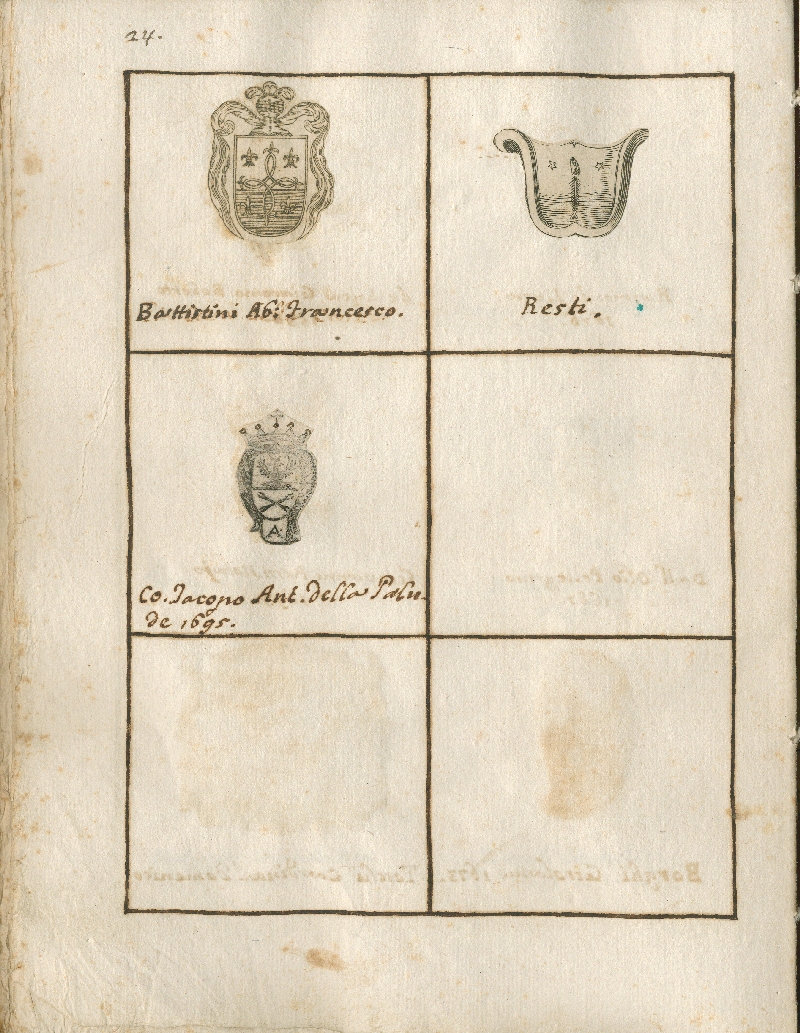 24.
Battistini Ab: Francesco.
Resti.
A
Co. Jacopo Ant. della Palu-
de 1695.